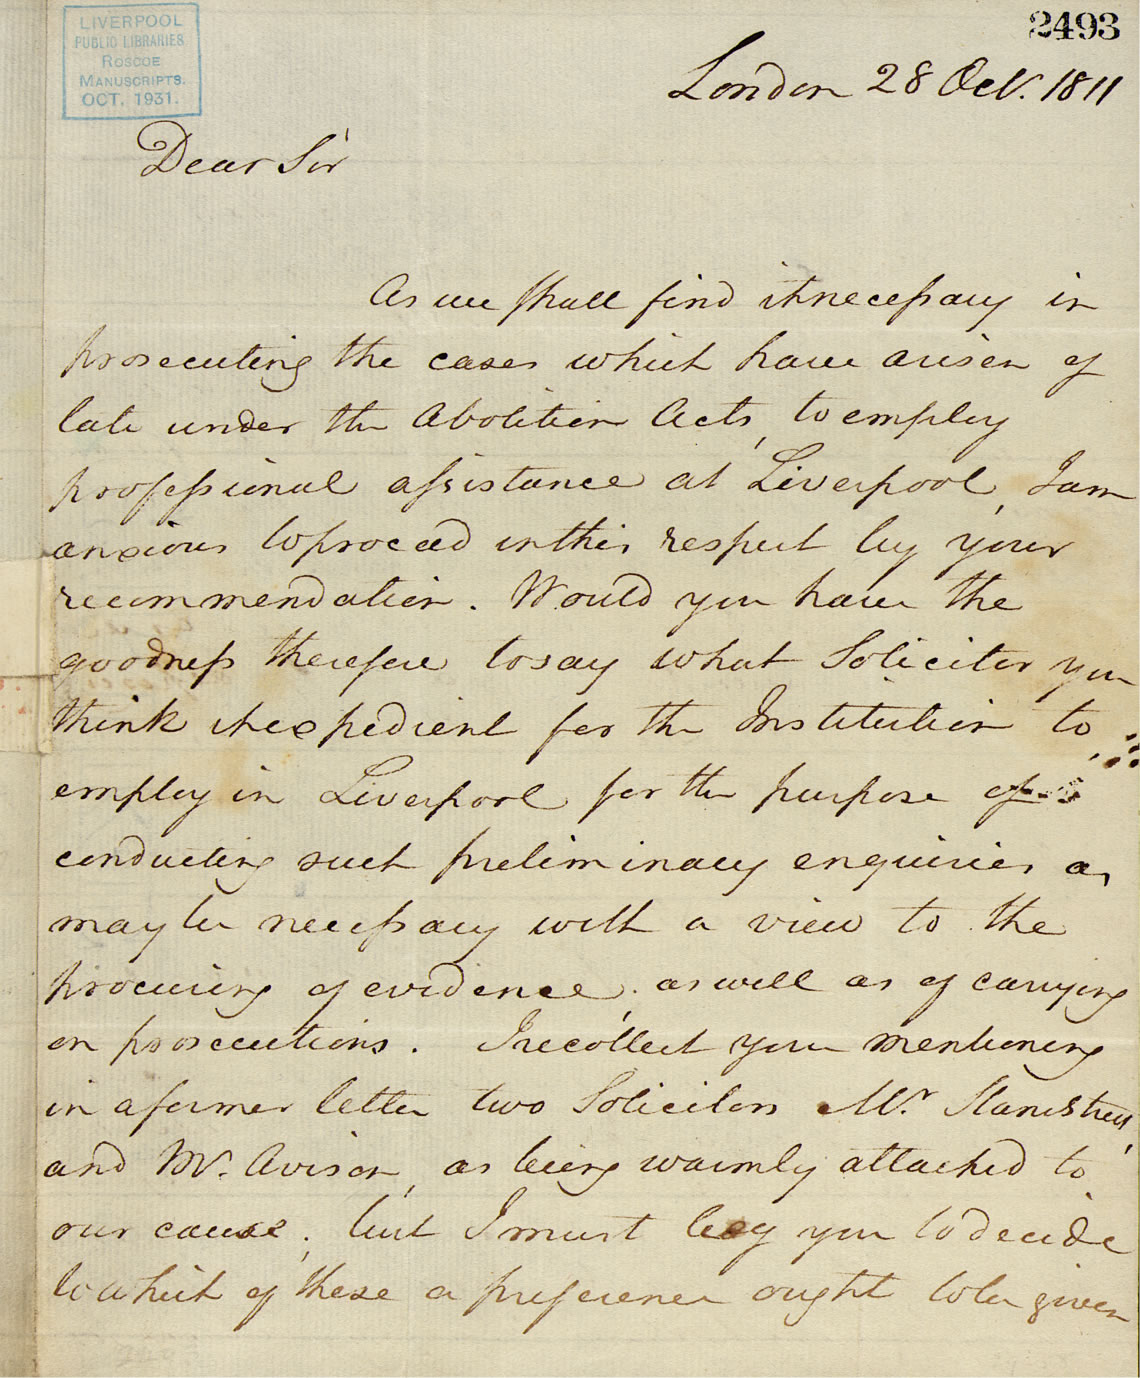 2493
LIVERPOOL
PUBLIC LIBRARIES
ROSCOE
MANUSCRIPTS.
OCT. 1931.
London 28 Oct. 1811
Dear Sir
As we shall find it necessary in
prosecuting the cases which have arisen of
late under the Abolition Acts, to employ
professional assistance at Liverpool, I am
anxious to proceed in this respect by your
recommendation. Would you have the
goodness therefore to say what Solicitor you
think it expedient for the Institution to
employ in Liverpool for the purpose of
conducting such preliminary enquiries as
may be necessary with a view to the
procuring of evidence, as well as of carrying
on prosecutions. I recollect you mentioning
in a former letter two Solicitors Mr. Stanistreet,
and Mr. Avison, as being warmly attached to
our cause; but I must beg you to decide
to which of these a preference ought to be given